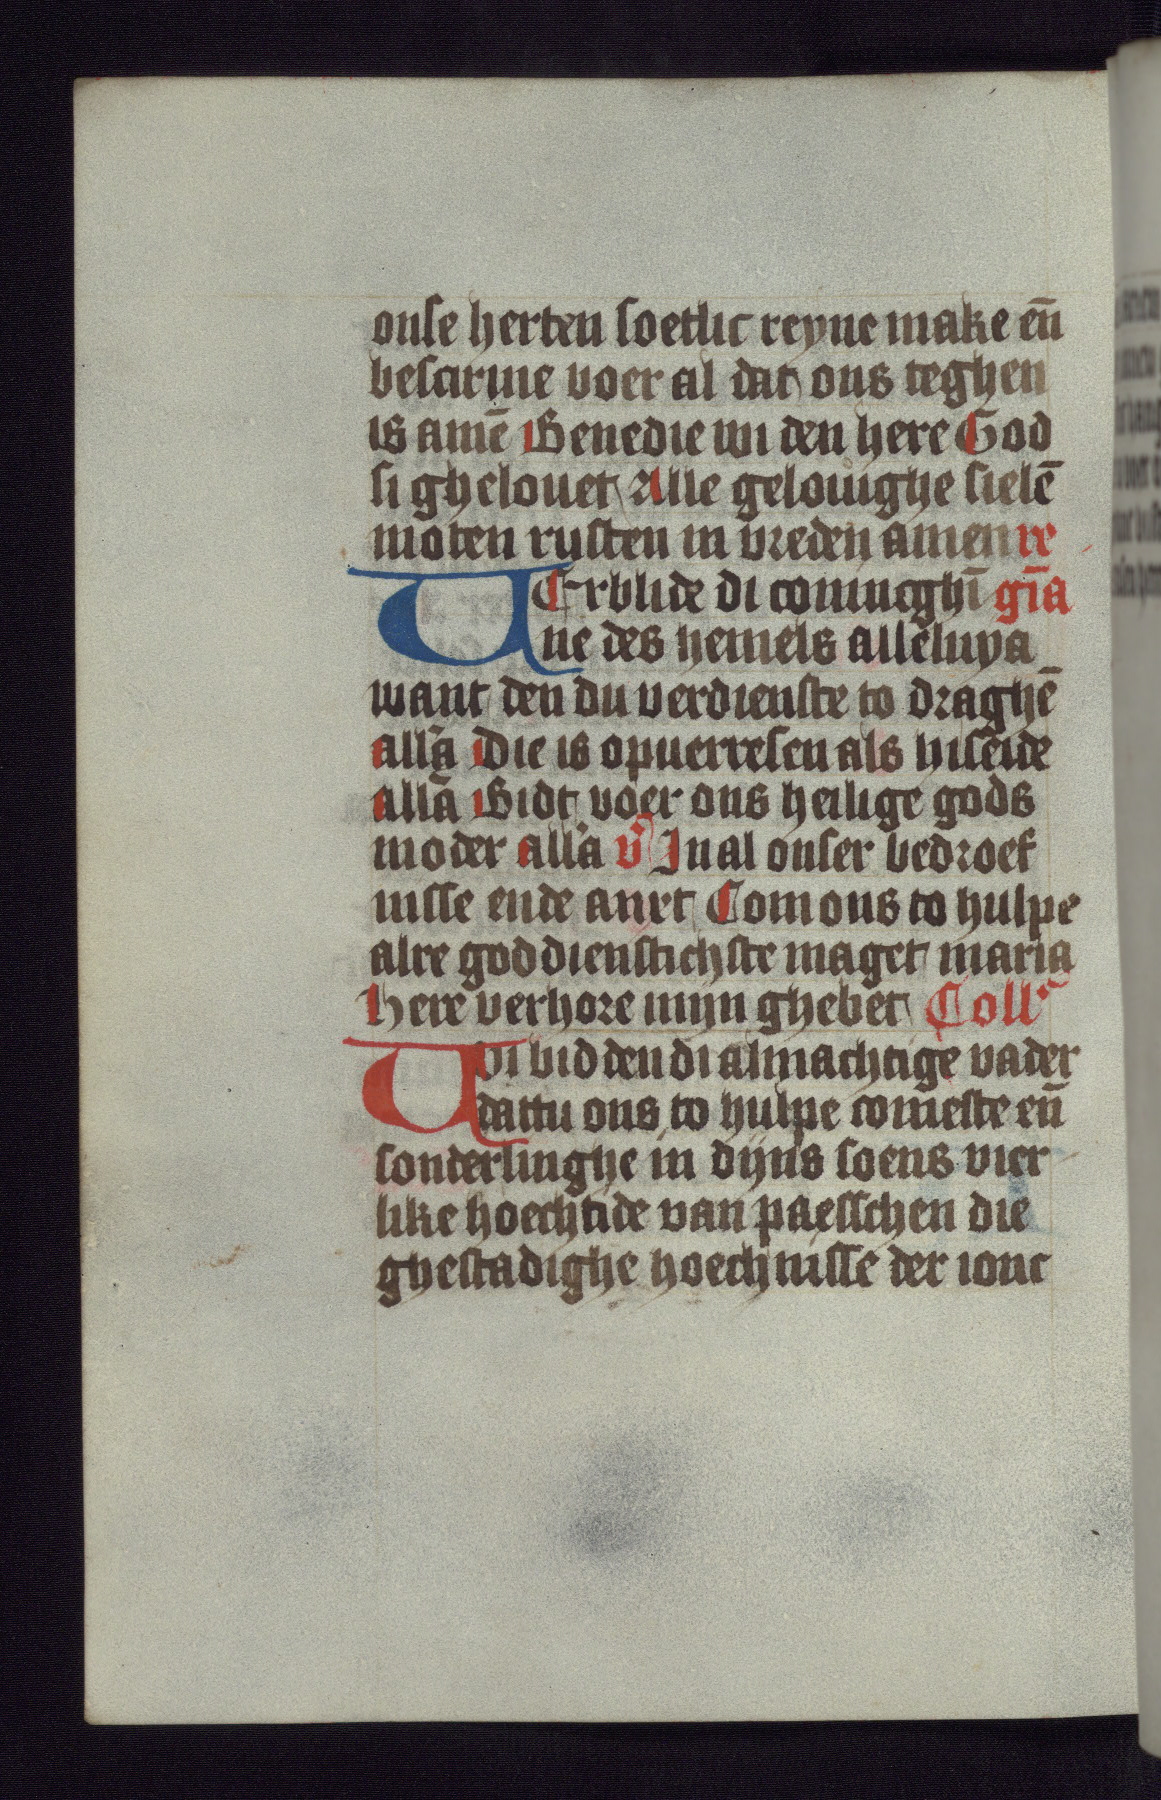 onse herten soetlic reyne make en̄
bescirme voer al dat ons teghen
is amē Benedie wi den here God
si ghelovet Alle gelovighe sielē
moten rusten in vreden amen re
VErblide di conincghī gīa
ne des hemels allēluya
want den du verdienste to draghē
allā Die is opverresen als hi sēide
allā Bidt voer ons heilige gods
moder allā v̄ In al onser bedroef
nisse ende anxt Com ons to hulpe
alre goddienstichste maget maria
Here verhore mijn ghebet Coll'
WI bidden di almachtige vader
dattu ons to hulpe comeste en̄
sonderlinghe in dijns soens vier
like hoechtide van paesschen die
ghestadighe hoechnisse der ionc